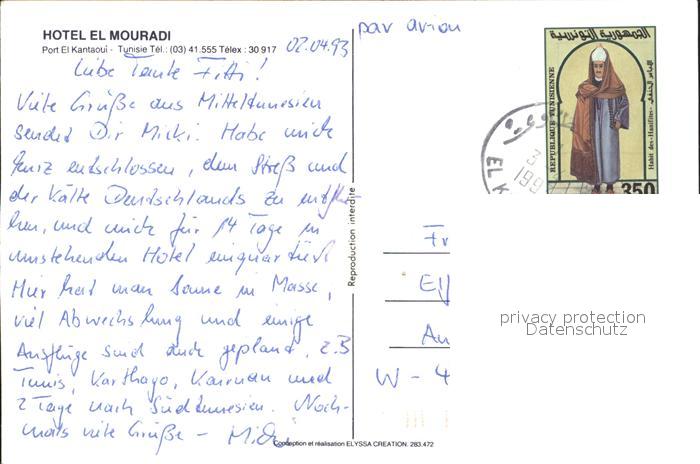 HOTEL EL MOURADI
Port El Kantaoui - Tunisie Tél.: (03) 41.555 Télex : 30 917
02.04.93
par avion
Liebe Tante Fitti!
Viele Grüße aus Mitteltunesien
sendet Dir Micki. Habe mich
kurz entschlossen, dem Streß und
der Kälte Deutschlands zu entflie-
hen, und mich für 14 Tage in
umstehenden Hotel einquartiert.
Hier hat man Sonne in Masse,
viel Abwechslung und einige
Ausflüge sind auch geplant, z.B
Tunis, Karthago, Kairuan und
2 Tage nach Südtunesien. Noch-
mals viele Grüße - Micki
Reproduction interdite
Conception et réalisation ELYSSA CREATION. 283.472
الجمهورية التونسية
REPUBLIQUE TUNISIENNE
اللباس الحنفي
Habit des «Hanifites»
350
EL K
199
Fr
Ef
An
W - 4
privacy protection
Datenschutz